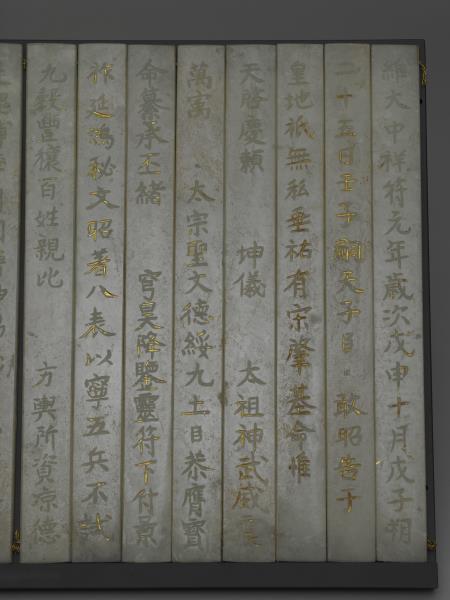 維大中祥符元年歲次戊申十月戊子朔
二十五日壬子嗣天子臣 敢昭告于
皇地祇無私垂祐有宋肇基命惟
天啓慶賴 坤儀 太祖神武威震
萬寓 太宗聖文德綏九土臣恭膺寶
命纂承丕緒 穹昊降鑒靈符下付景
祚延鴻秘文昭著八表以寧五兵不試
九穀豐穰百姓親比 方輿所資涼德